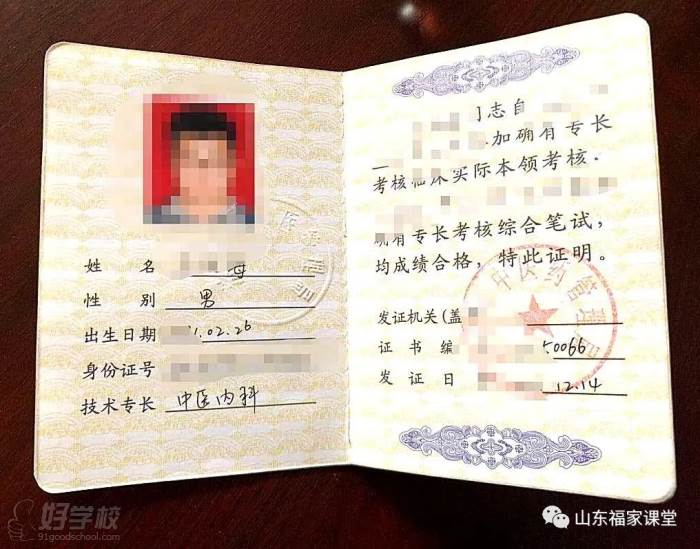 姓 名
性 别 男
出生日期 .02.26
身份证号
技术专长 中医内科
志自
加确有专长
考核临床实际本领考核.
确有专长考核综合笔试,
均成绩合格，特此证明。
发证机关(盖
证书编 50066
发证日 12.14
中医药管理局
好学校
91goodschool.com
山东福家课堂